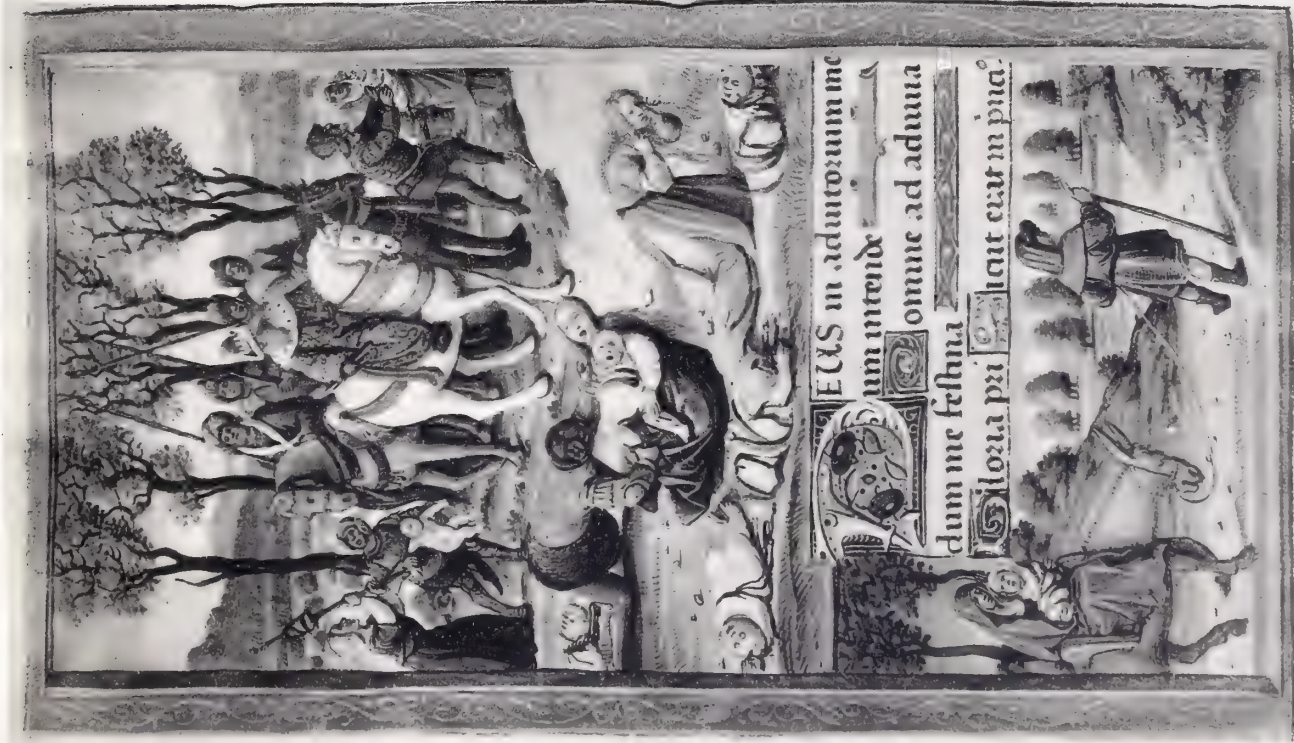 DEUS in adiutorium me
um intende
Domine ad adiuua
dum me festina
Gloria pri Sicut erat in pnci.